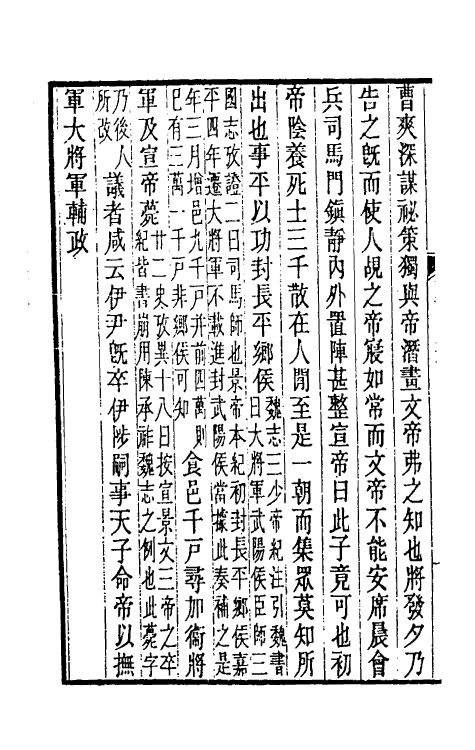 曹爽深謀祕策獨與帝潛畫文帝弗之知也將發夕乃
告之旣而使人覘之帝寢如常而文帝不能安席晨會
兵司馬門鎭靜內外置陣甚整宣帝曰此子竟可也初
帝陰養死士三千散在人閒至是一朝而集眾莫知所
出也事平以功封長平鄉侯魏志三少帝紀注引魏書
曰大將軍武陽侯臣師三
國志攷證二曰司馬師也景帝本紀初封長平鄉侯嘉
平四年遷大將軍不載進封武陽侯當據此奏補之是
年三月增邑九千戸并前四萬則
巳有三萬一千戸非鄉侯可知食邑千戸尋加衞將
軍及宣帝薨廿二史攷異十八曰按宣景文三帝之卒
紀皆書崩用陳承祚魏志之例也此薨字
乃後人
所改議者咸云伊尹旣卒伊陟嗣事天子命帝以撫
軍大將軍輔政